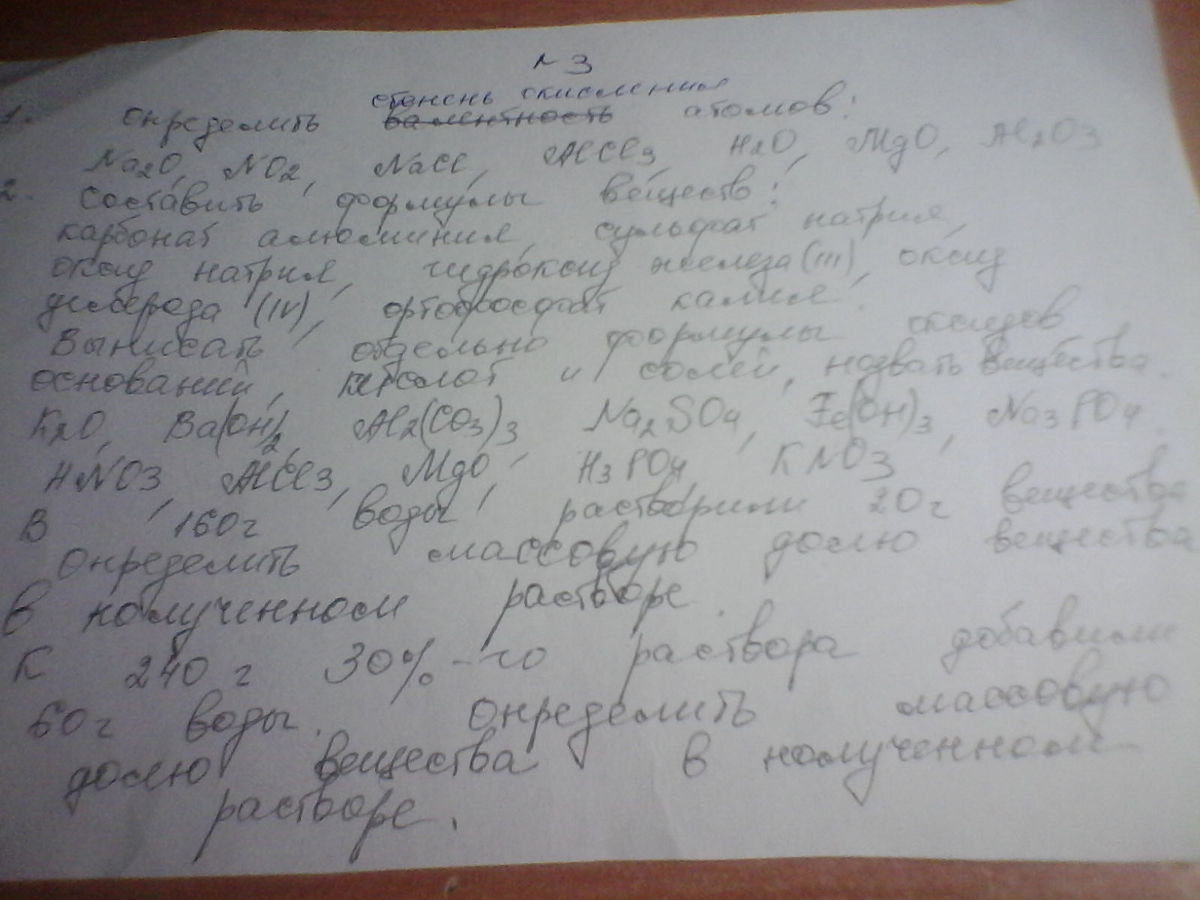 № 3
степень окисления
1. Определить валентность атомов:
Na2O, NO2, NaCl, AlCl3, H2O, MgO, Al2O3
2. Составить формулы веществ:
карбонат алюминия, сульфат натрия,
оксид натрия, гидроксид железа (III), оксид
углерода (IV), ортофосфат калия
Выписать отдельно формулы оксидов
оснований, кислот и солей, назвать вещества.
K2O, Ba(OH)2, Al2(CO3)3, Na2SO4, Fe(OH)3, Na3PO4.
HNO3, AlCl3, MgO, H3PO4, KNO3
В 160г воды растворили 20г вещества
Определить массовую долю вещества
в полученном растворе.
К 240 г 30%-го раствора добавили
60г воды. Определить массовую
долю вещества в полученном
растворе.